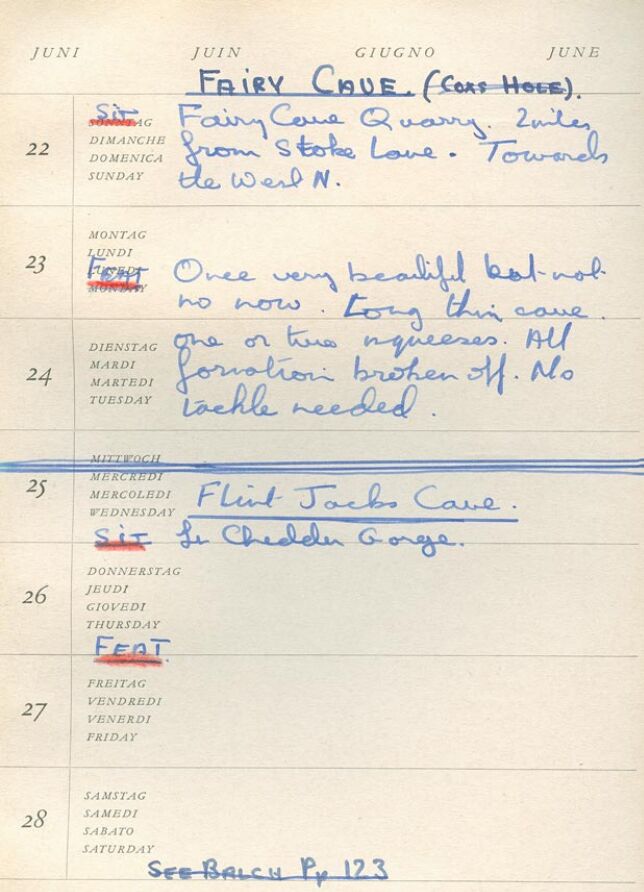 JUNI JUIN GIUGNO JUNE
FAIRY CAVE. (COXS HOLE).
22
Sit
SONNTAG
DIMANCHE
DOMENICA
SUNDAY
Fairy Cave Quarry. 2 miles
from Stoke Lane. Towards
the West N.
23
MONTAG
LUNDI
LUNEDI
MONDAY
FEAT
Once very beautiful but not
no now. Long thin cave.
24
DIENSTAG
MARDI
MARTEDI
TUESDAY
one or two squeezes. All
formation broken off. No
tackle needed.
25
MITTWOCH
MERCREDI
MERCOLEDI
WEDNESDAY
Flint Jacks Cave.
SIT In Cheddar Gorge.
26
DONNERSTAG
JEUDI
GIOVEDI
THURSDAY
FEAT.
27
FREITAG
VENDREDI
VENERDI
FRIDAY
28
SAMSTAG
SAMEDI
SABATO
SATURDAY
SEE BALCH Pp 123